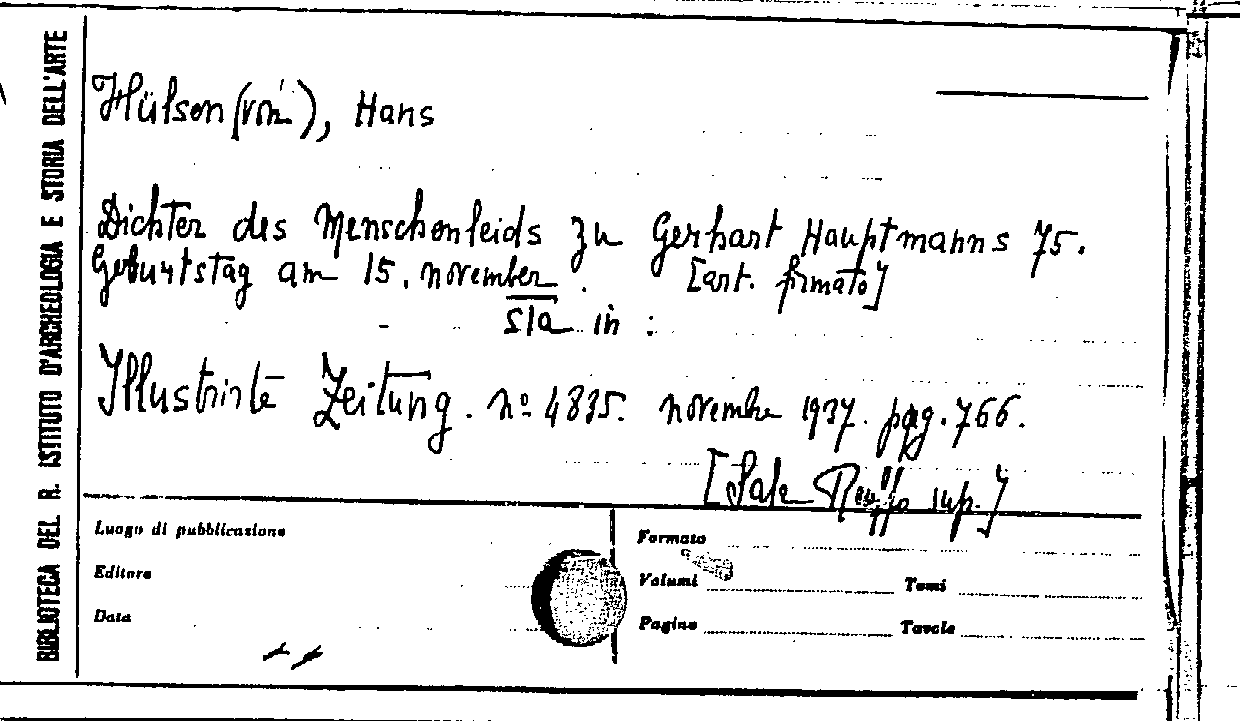 BIBLIOTECA DEL R. ISTITUTO D'ARCHEOLOGIA E STORIA DELL'ARTE
Hülsen (von), Hans
Dichter des Menschenleids zu Gerhart Hauptmanns 75.
Geburtstag am 15. november. [art. firmato]
sta in :
Illustrirte Zeitung. nº 4835. novembre 1937. pag. 766.
[Sala
Luogo di pubblicazione
Editore
Data
Formato
Volumi Tomi
Pagine Tavole